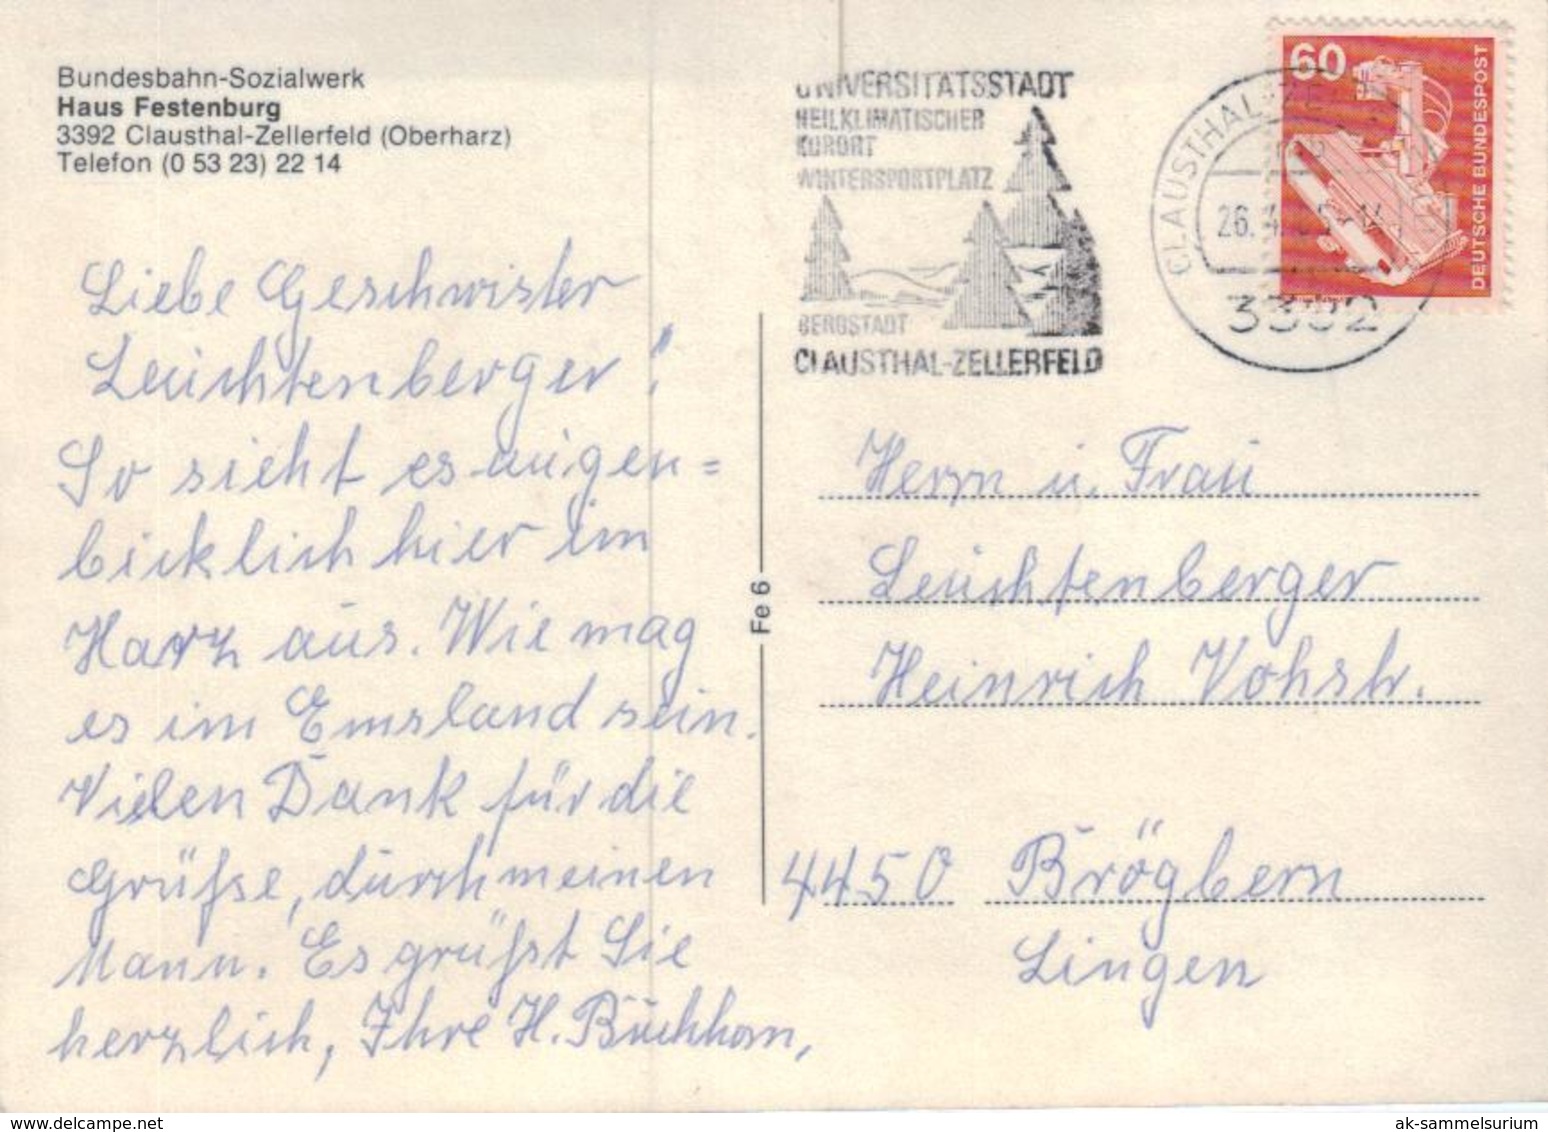 Bundesbahn-Sozialwerk
Haus Festenburg
3392 Clausthal-Zellerfeld (Oberharz)
Telefon (0 53 23) 22 14
UNIVERSITÄTSSTADT
HEILKLIMATISCHER
KURORT
WINTERSPORTPLATZ
BERGSTADT
CLAUSTHAL-ZELLERFELD
CLAUSTHAL-ZE
26.
3392
60
DEUTSCHE BUNDESPOST
Liebe Geschwister
Leuchtenberger!
So sieht es augen=
bicklich hier im
Harz aus. Wie mag
es im Emsland sein.
Vielen Dank für die
Grüße, durch meinen
Mann. Es grüßt Sie
herzlich, Ihre H. Buchhorn,
Fe 6
Herrn u. Frau
Leuchtenberger
Heinrich Vohstr.
4450 Brögbern
Lingen
ak-ansichtskarten.de